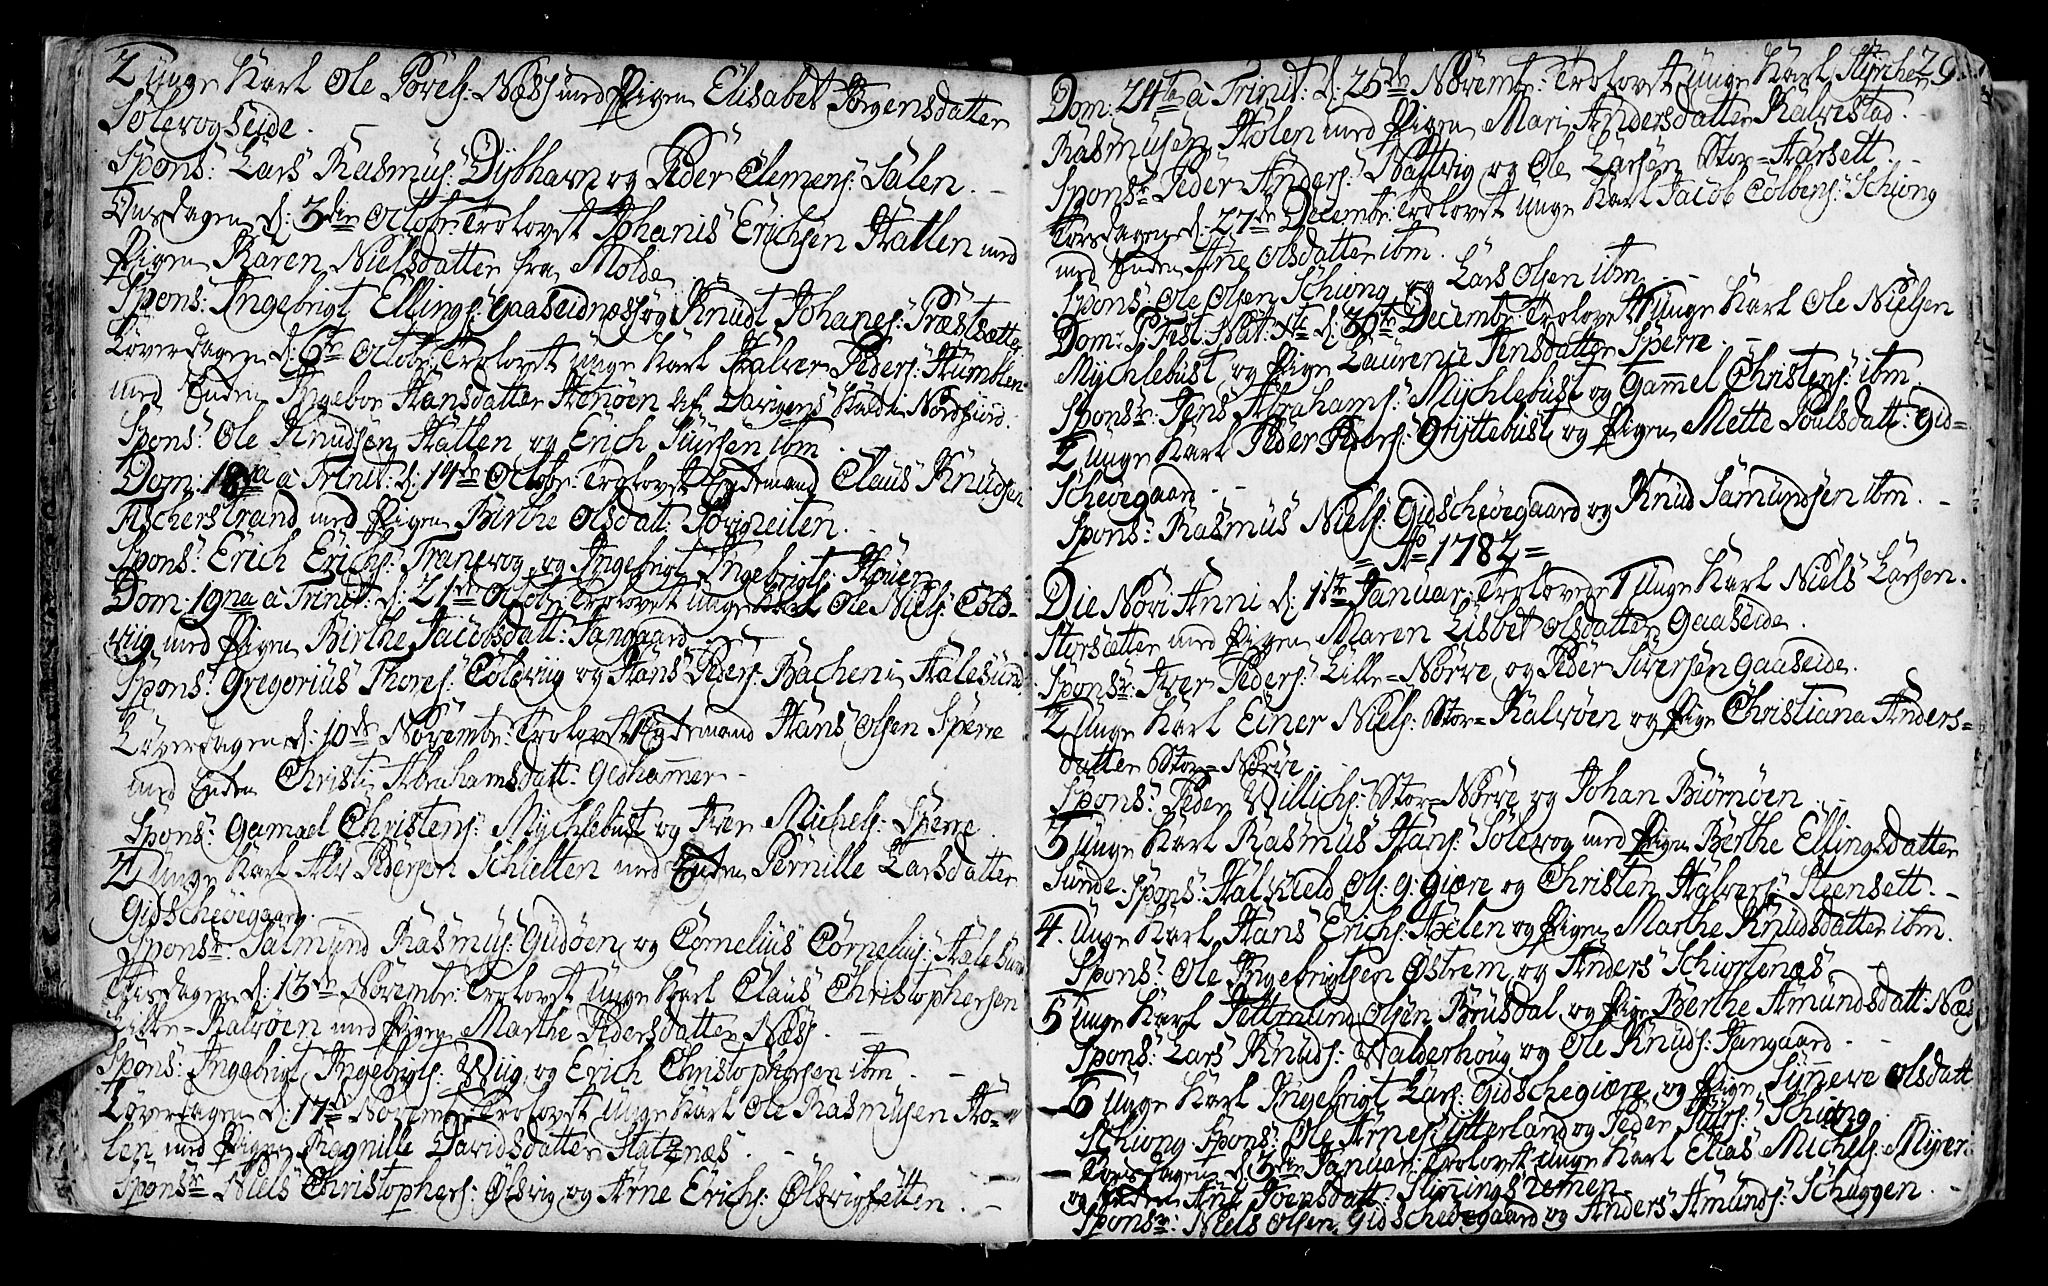 2 Unge Karl Ole Povels: Næss med Pigen Elisabet Jørgensdatter
Solevogseide.
Spons: Lars Rasmus: Dybhavn og Peder Clemens: Salen.
Onsdagen d: 3die Octobr: Trolovet Johanis Erichsen Hatlen med
Pigen Karen Nielsdatter fra Molde
Spons: Ingebrigt Ellings: Gaaseidnæss og Knudt Johanes: Præstsætter
Løverdagen d: 6te Octobr: Trolovet unge Karl Halver Peders: Humblen
med Enken Ingebor Hansdatter Henøen af Davigens Kald i Nordfiord.
Spons: Ole Knudsen Hatlen og Erich Siursen ibm
Dom: 18na à Trinit: d: 14de Octobr: Trolovet Enkemand Claus Knudsen
Fischerstrand med Pigen Birthe Olsdatt:
Spons: Erich Erichs: Tranevog og Ingebrigt Ingebrigts:
Dom: 19na à Trinit: d: 21de Octobr: Trolovet unge Karl Ole Niels: Cold-
viig med Pigen Birthe Jacobsdatt: Tangaard
Spons: Gregorius Thores: Coldviig og Hans Peders: Bachen i Aalesund
Løverdagen d: 10de Novembr: Trolovet Enkemand Hans Olsen Sperre
med Enken Christi Abrahamsdatt: Gedhammer
Spons: Gamael Christens: Mychlebust og Iver Michels: Sperre
2 Unge Karl Alv Pedersen Schielten med Enken Pernille Larsdatter
Gidscheøegaard.
Sponsr: Salmund Rasmus: Gudøen og Cornelius Cornelius: Aalesund
Tisdagen d: 13de Novembr: Trolovet unge Karl Claus Christophersen
Lille-Kalvøen med Pigen Marthe Pedersdatter Næss.
Spons: Ingebrigt Ingebrigts: Wiig og Erich Christophersen ibm.
Løverdagen d: 17de Novembr: Trolovet unge Karl Ole Rasmusen Ho-
len med Pigen Ragnille Davidsdatter Hatlenæs.
Sponsr: Niels Christophers: Ølsvig og Arne Erichs: Ølsvigsetten.
29.
Dom: 24ta à Trinit: d: 25de Novembr: Trolovet unge Karl
Rasmusen Holen med Pigen Mari Andersdatter Kalvestad.
Sponsr: Peder Anders: Nattvig og Ole Larsen Stor-Aarsett.
Torsdagen d: 27de Decembr: Trolovet unge Karl Jacob Colbens: Schiong
med Enken Ane Olsdatter ibm.
Spons: Ole Olsen Schiong og Lars Olsen ibm.
Dom: P: Fest: Nat: Xti d: 30te Decembr: Trolovet 1 Unge Karl Ole Nielsen
Mychlebust og Pige Laurenie Jensdatter Sperre.
Sponsr: Jens Abrahams: Mychlebust og Gammel Christens: ibm.
2 Unge Karl Peder Ifvers: Gryttebust og Pigen Mette Poulsdatt: Gid-
Scheøegaard
Spons: Rasmus Niels: Gidscheøegaard og Knud Samundsen ibm.
= Ao 1782 =
Die Novi Anni d: 1ste Januar: Trolovede 1 Unge Karl Niels Larsen
Storsætter med Pigen Maren Lisbet Olsdatter Gaaseide.
Sponsr: Iver Peders: Lille-Nørve og Peder Siversen Gaaseide.
2 Unge Karl Einer Niels: Stor-Kalvøen og Pige Christiana Anders-
datter Stor-Nørve.
Spons: Peder Willichs: Stor-Nørve og Johan Biørnøen
3 Unge Karl Rasmus Hans: Solevog med Pigen Berthe Ellingsdatter
Sunde. Spons: Halkield Ols: G: Giære og Christen Halvers: Steensett.
4. Unge Karl Hans Erichs: Axlen og Pigen Marthe Knudsdatter ibm.
Spons: Ole Ingebrigtsen Østrem og Anders Schiortenæs
5 Unge Karl Tellmund Olsen Brusdal og Pige Berthe Amundsdatt: Næs
Spons: Lars Knuds: Walderhoug og Ole Knuds: Tangaard
6 Unge Karl Ingebrigt Lars: Gidschegiære og Pige Synneve Olsdatt
Schiong. Spons: Ole Arnes: Ytterland og Peder Schiong
Torsdagen d: 3die Januar: Trolovet unge Karl Elias Michels: Myren
og Enken Ane Joensdatt: Slinningsremen
Sponsr: Niels Olsen Gidscheøegaard og Anders Amunds: Schuggen.